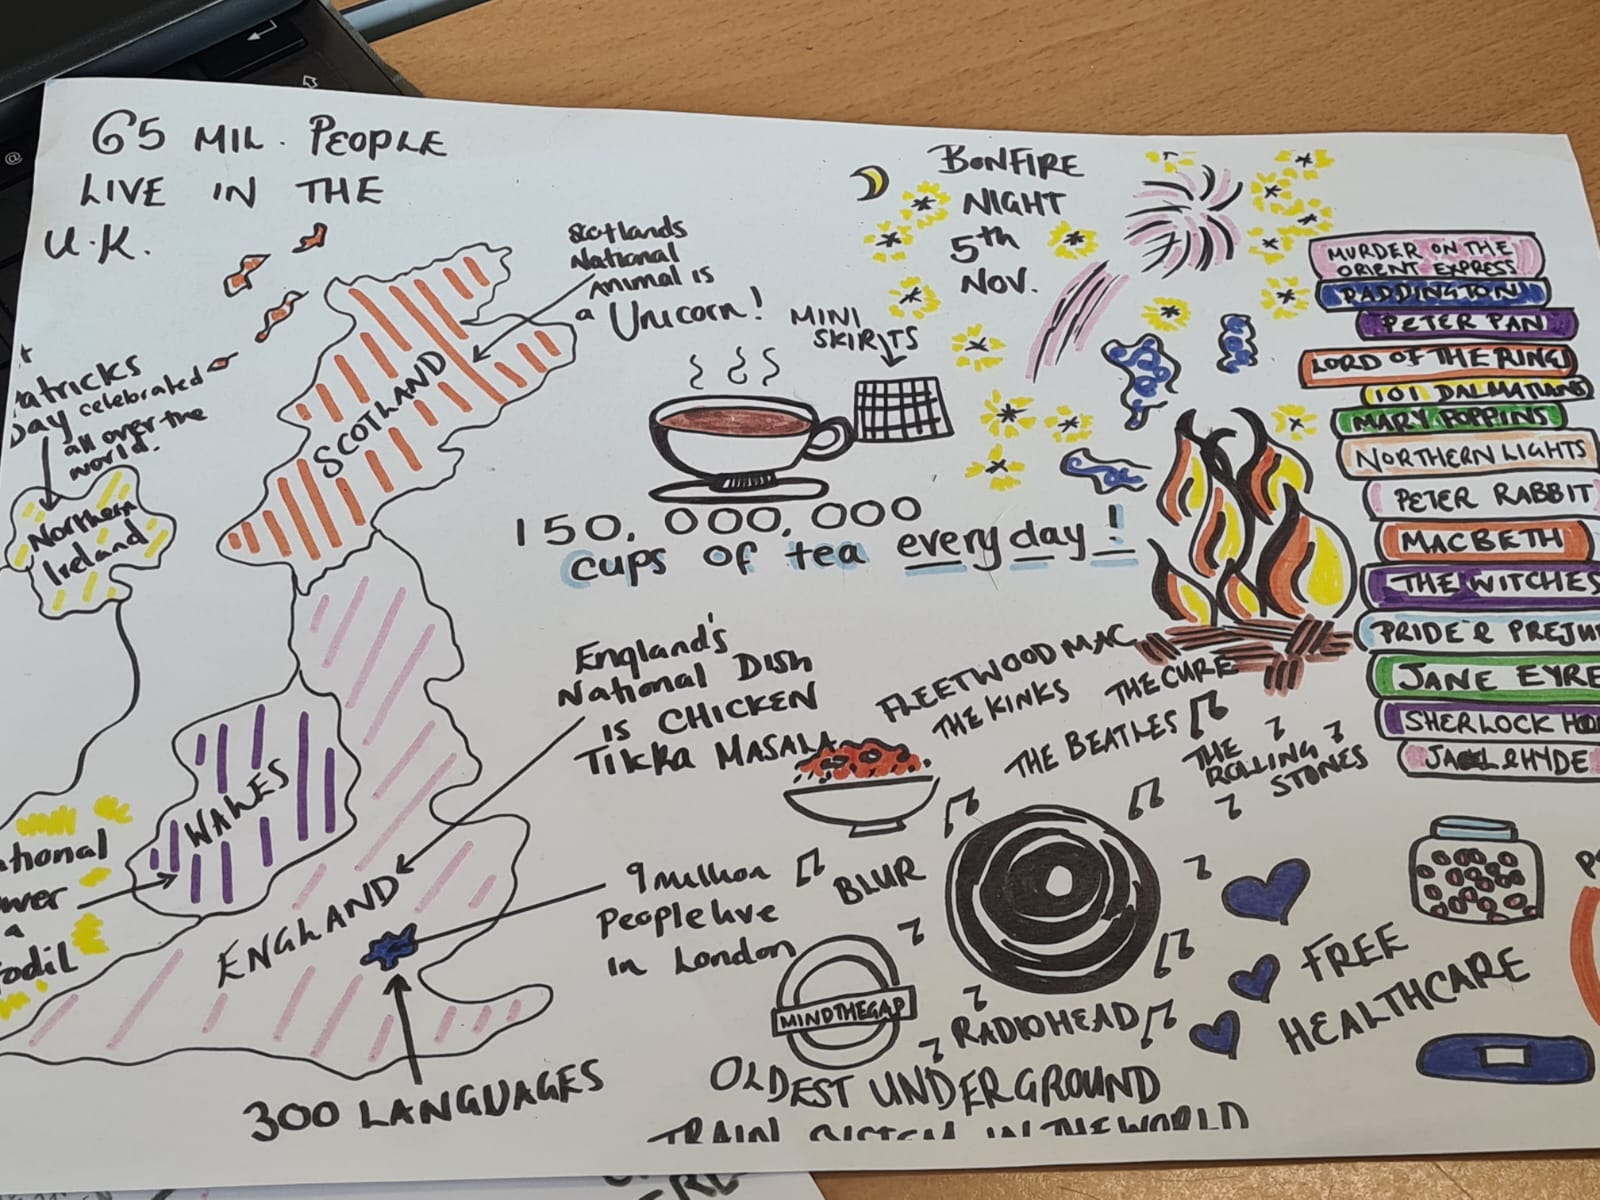 65 MIL. PEOPLE
LIVE IN THE
U.K.
Scotlands
National
Animal is
a Unicorn!
SCOTLAND
atricks
Day celebrated
all over the
world.
Northern
Ireland
WALES
ational
wer
a
fodil
ENGLAND
300 LANGUAGES
BONFIRE
NIGHT
5th
NOV.
MINI
SKIRTS
150,000,000
cups of tea every day!
England's
National Dish
is CHICKEN
Tikka MASALA
9 million
People live
in London
FLEETWOOD MAC
THE KINKS
THE CURE
THE BEATLES
THE
ROLLING
STONES
BLUR
RADIOHEAD
MIND THE GAP
OLDEST UNDERGROUND
TRAIN SYSTEM IN THE WORLD
FREE
HEALTHCARE
MURDER ON THE
ORIENT EXPRESS
PADDINGTON
PETER PAN
LORD OF THE RING
101 DALMATIANS
MARY POPPINS
NORTHERN LIGHTS
PETER RABBIT
MACBETH
THE WITCHES
PRIDE & PREJU
JANE EYRE
SHERLOCK HO
&HYDE
P
@